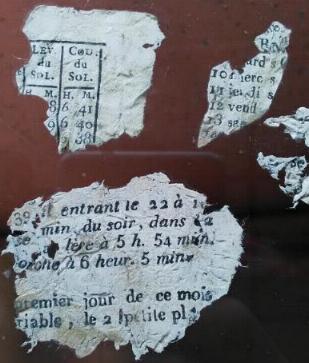 LEV. COU.
du du
SOL. SOL.
M. H. M.
8 6 41
9 6 40
38
10 merc
11 jeudi s
12 vend
13 sa
entrant le 22 à 1
min. du soir, dans
lère à 5 h. 54 min.
proche à 6 heur. 5 min.
premier jour de ce mois
riable, le 2 petite pl